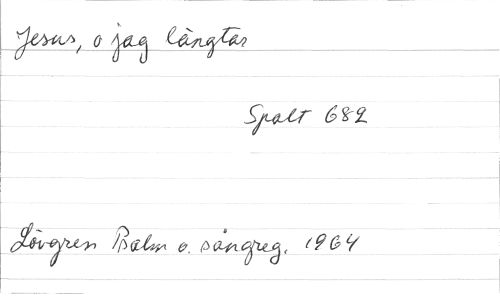 Jesus, o jag längtar
Spalt 682
Lövgren Psalm o. sångreg. 1964